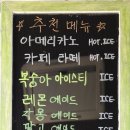 추천 메뉴
아메리카노 HOT. ICE
카페 라떼 HOT. ICE
복숭아 아이스티 ICE
레몬 에이드 ICE
자몽 에이드 ICE
에이드 ICE